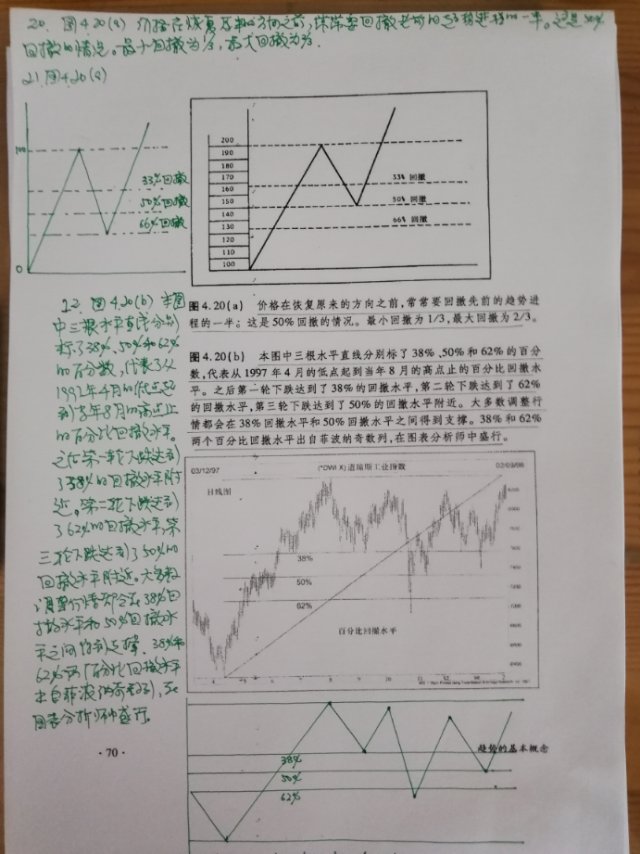 20. 图4.20(a) 价格在恢复原来的方向之前,常常要回撤先前的趋势进程的一半。这是50%
回撤的情况。最小回撤为⅓,最大回撤为⅔.
21.图4.20(a)
33%回撤
50%回撤
66%回撤
0
200
190
180
170
160
150
140
130
120
110
100
33% 回撤
50% 回撤
66% 回撤
图4.20(a) 价格在恢复原来的方向之前,常常要回撤先前的趋势进
程的一半;这是50%回撤的情况。最小回撤为1/3,最大回撤为2/3。
图4.20(b) 本图中三根水平直线分别标了38%、50%和62%的百分
数,代表从1997年4月的低点起到当年8月的高点止的百分比回撤水
平。之后第一轮下跌达到了38%的回撤水平,第二轮下跌达到了62%
的回撤水平,第三轮下跌达到了50%的回撤水平附近。大多数调整行
情都会在38%回撤水平和50%回撤水平之间得到支撑。38%和62%
两个百分比回撤水平出自菲波纳奇数列,在图表分析师中盛行。
22. 图4.20(b) 本图
中三根水平直线分别
标了38%、50%和62%
的百分数,代表了从
1997年4月的低点起
到当年8月的高点止
的百分比回撤水平。
之后第一轮下跌达到
了38%的回撤水平附
近。第二轮下跌达到
了62%的回撤水平,第
三轮下跌达到了50%的
回撤水平附近。大多数
调整行情都会在38%回
撤水平和50%回撤水
平之间得到支撑.38%和
62%两个百分比回撤水平
出自菲波纳奇数列,在
图表分析师中盛行。
03/12/97
(*DWI X) 道琼斯工业指数
02/09/98
日线图
38%
50%
62%
百分比回撤水平
·70·
趋势的基本概念
38%
50%
62%